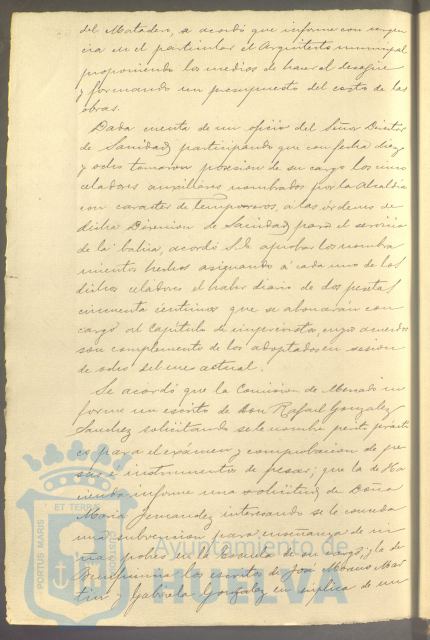 del Matadero, se acordó que informe con urgen
cia en el particular el Arquitecto municipal
proponiendo los medios de hacer el desagüe
y formando un presupuesto del costo de las
obras.
Dada cuenta de un oficio del Señor Director
de Sanidad, participando que con fecha diez
y ocho tomaron posesion de su cargo los cinco
celadores auxiliares nombrados por la Alcaldia
con caracter de temporeros, a las órdenes de
dicha Direccion de Sanidad para el servicio
de la bahia, acordó S.E. aprobar los nombra
mientos hechos asignando á cada uno de los
dichos celadores el haber diario de dos pesetas
cincuenta céntimos que se abonarán con
cargo al Capitulo de imprevistos, cuyo acuerdo
son complemento de los adoptados en sesion
de ocho del mes actual.
Se acordó que la Comision de Mercado in
forme un escrito de Don Rafael Gonzalez
Sanchez solicitando se le nombre perito práctic
o para el exámen y comprobacion de pe
sas é instrumentos de pesar; que la de Ha
cienda informe una solicitud de Doña
Maria Fernandez interesando se le conceda
una subvencion para enseñanza de ni
ñas pobres en la Escuela de su cargo; y la de
Beneficencia los escritos de José Moreno Mar
tin y Gabriela Gonzalez en súplica de un
PORTUS MARIS ET TERRÆ CUSTODIA
Ayuntamiento de
HUELVA